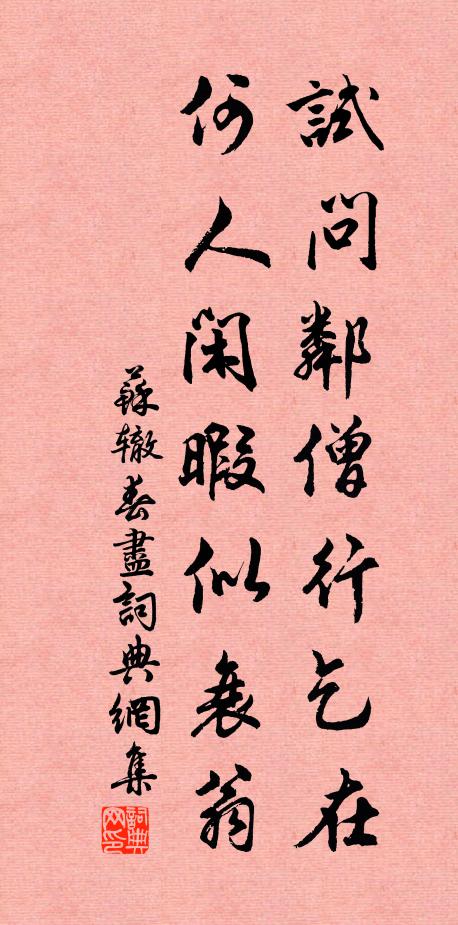 試問鄰僧行乞在
何人閑暇似衰翁
蘇辙春盡詞典網集
詞典网印